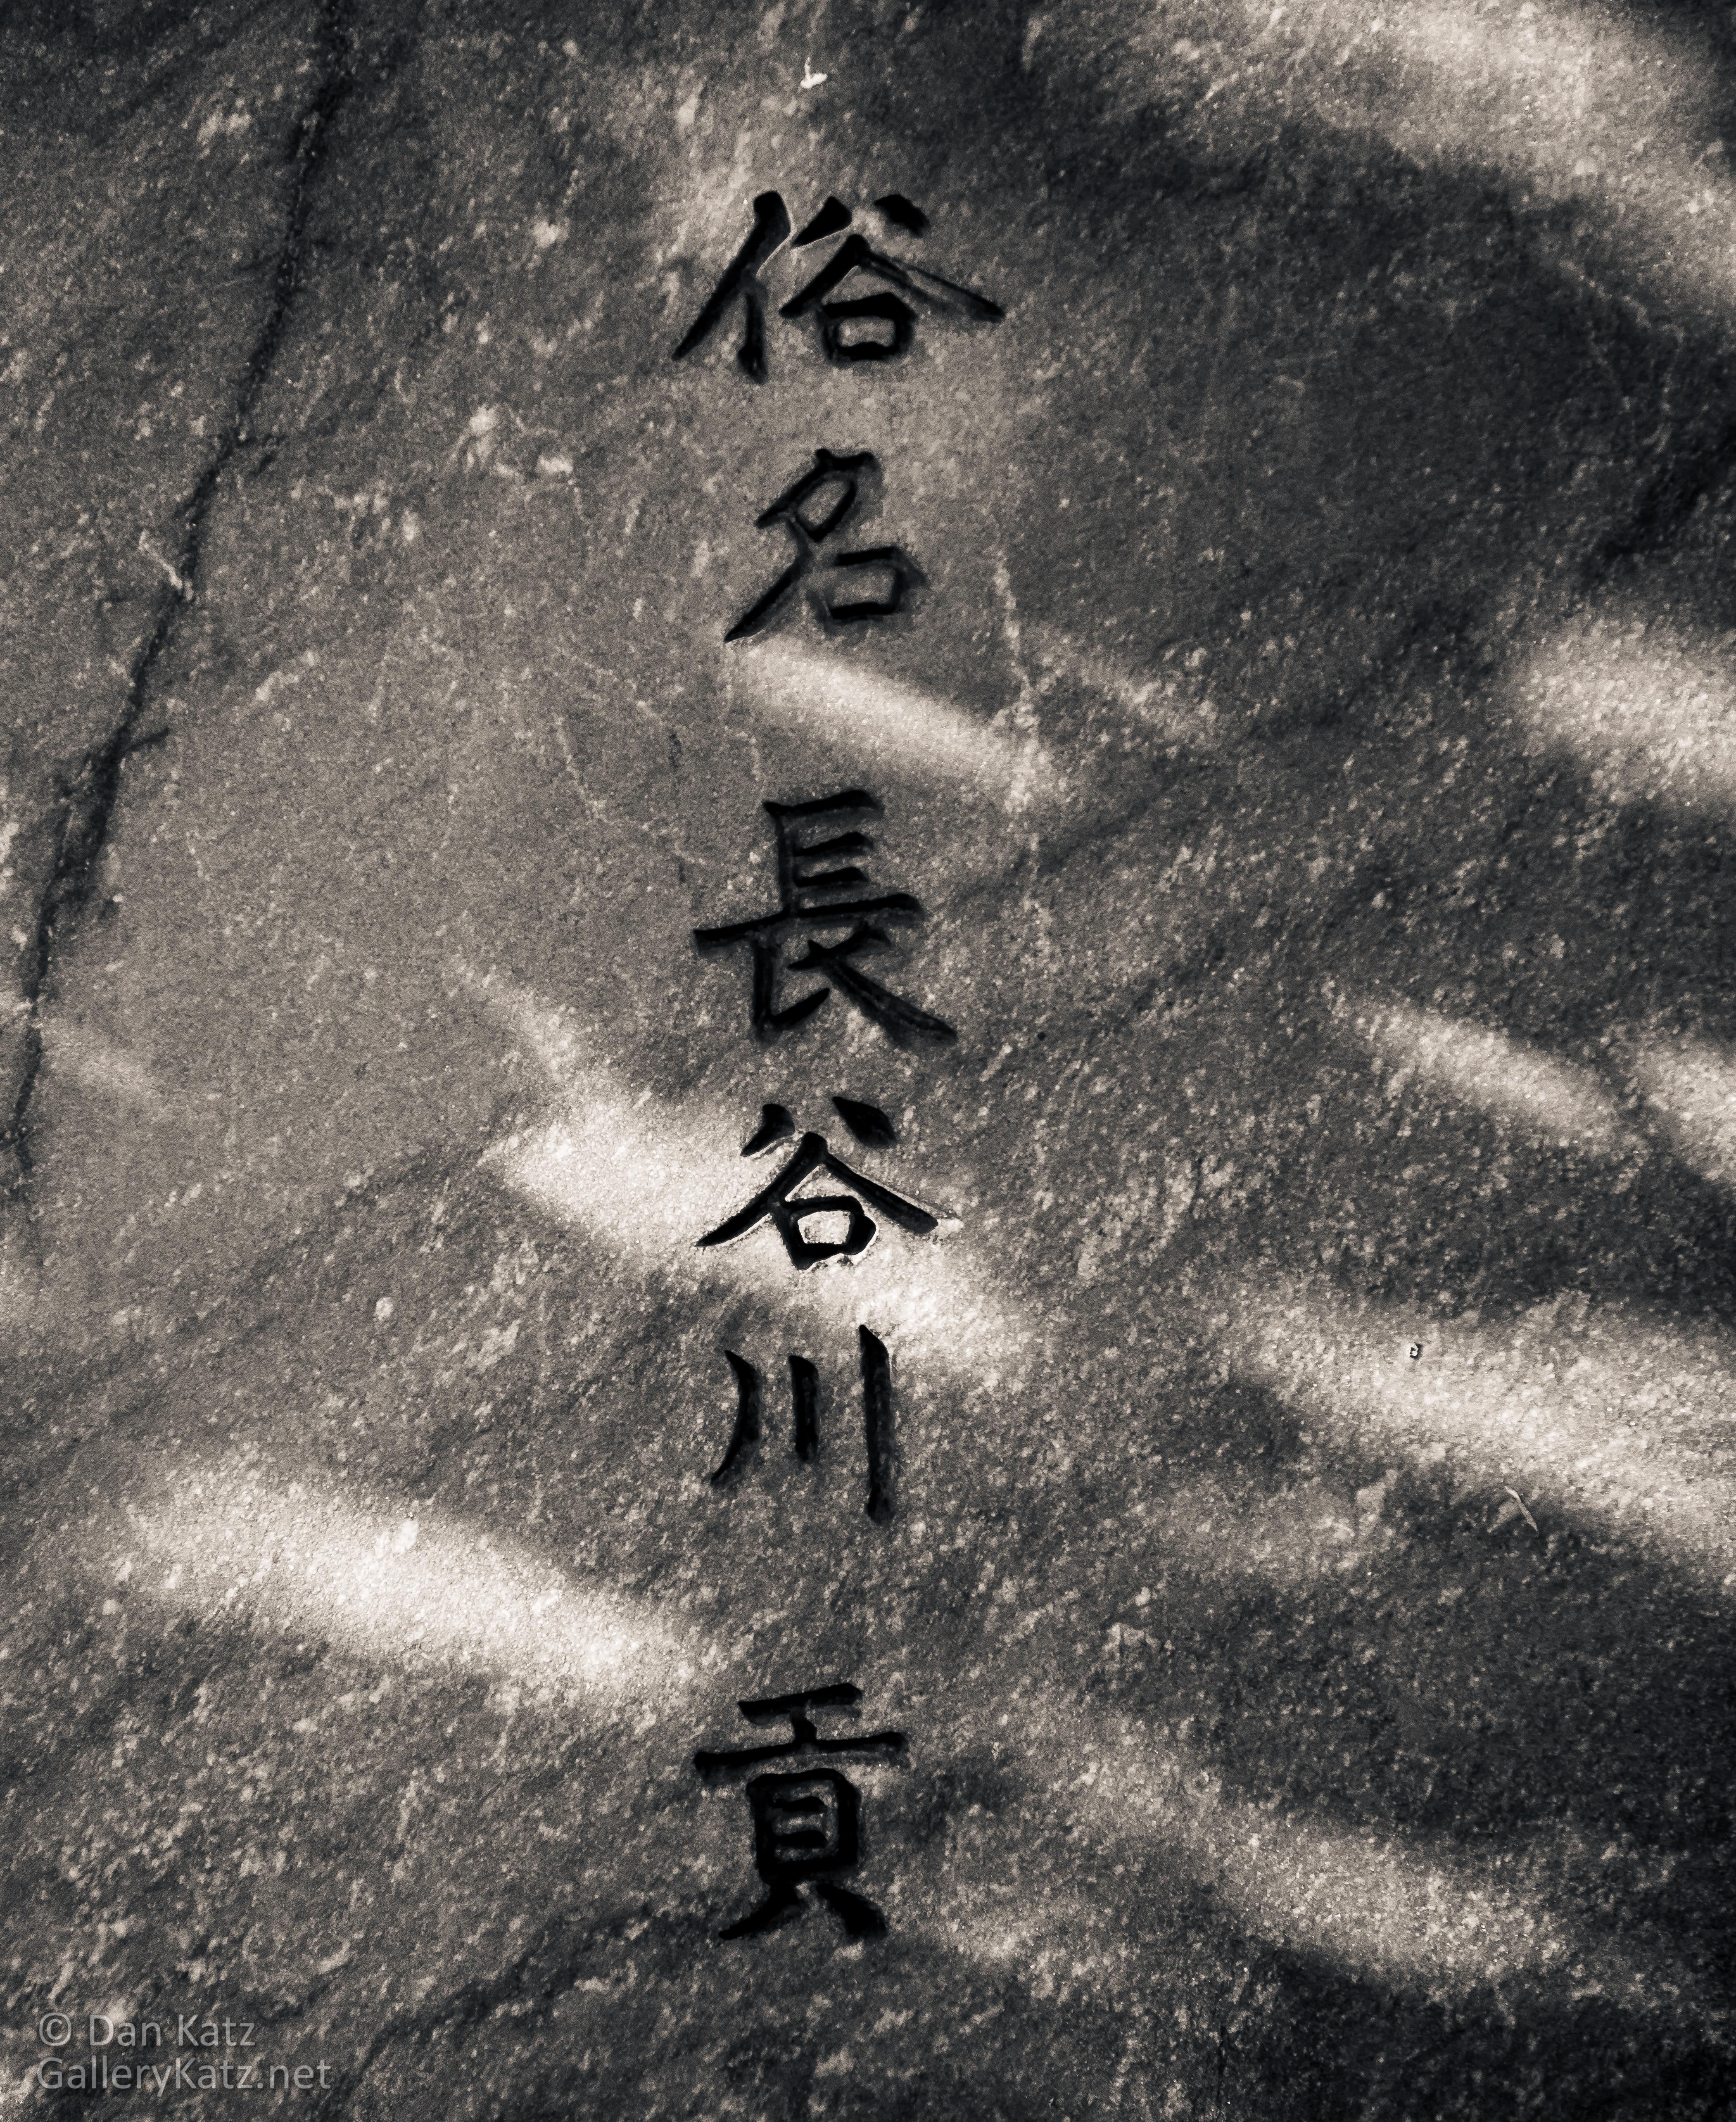 俗名 長谷川 貢
© Dan Katz
GalleryKatz.net